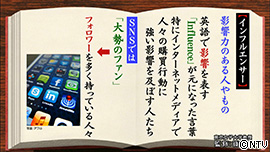 【インフルエンサー】
影響力のある人やもの
英語で影響を表す
「Influence」が元になった言葉
特にインターネットメディアで
人々の購買行動に
強い影響を及ぼす人たち
SNSでは
「大勢のファン」
フォロワーを多く持っている人々
©NTV